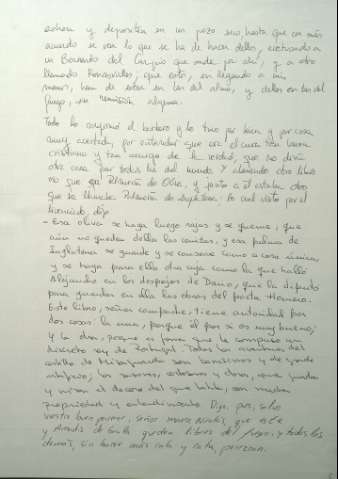 echen y depositen en un pozo seco, hasta que con más
acuerdo se vea lo que se ha de hacer dellos, ecetuando a
un Bernardo del Carpio que anda por ahí, y a otro
llamado Roncesvalles; que estos, en llegando a mis
manos, han de estar en las del ama, y dellas en las del
fuego, sin remisión alguna.
Todo lo confirmó el barbero y lo tuvo por bien y por cosa
muy acertada, por entender que era el cura tan buen
cristiano y tan amigo de la verdad, que no diría
otra cosa por todas las del mundo. Y abriendo otro libro
vio que era Palmerín de Oliva, y junto a él estaba otro
que se llamaba Palmerín de Inglaterra; lo cual visto por el
licenciado, dijo:
- Esa oliva se haga luego rajas y se queme, que
aún no queden della las cenizas, y esa palma de
Inglaterra se guarde y se conserve como a cosa única,
y se haga para ello otra caja como la que halló
Alejandro en los despojos de Dario, que la diputó
para guardar en ella las obras del poeta Homero.
Este libro, señor compadre, tiene autoridad por
dos cosas: la una, porque él por sí es muy bueno;
y la otra, porque es fama que le compuso un
discreto rey de Portugal. Todas las aventuras del
castillo de Miraguarda son bonísimas y de grande
artificio; las razones, cortesanas y claras, que guardan
y miran el decoro del que habla, con mucha
propiedad y entendimiento. Digo, pues, salvo
vuestro buen parecer, señor maese Nicolás, que este
y Amadís de Gaula queden libres del fuego, y todos los
demás, sin hacer más cala y cata, perezcan.